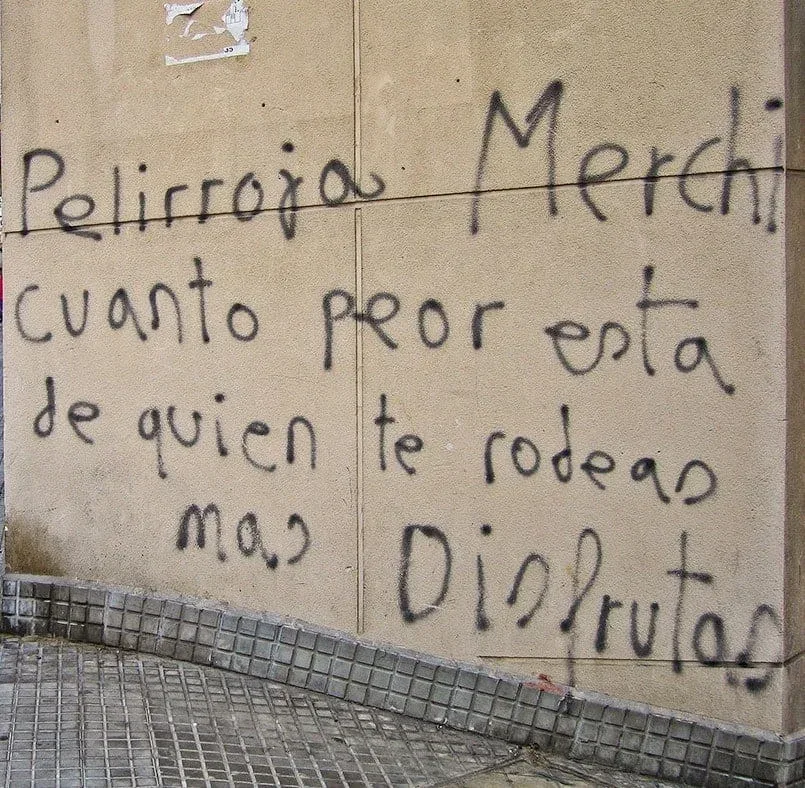 Pelirroja Merchi
cuanto peor esta
de quien te rodeas
mas Disfrutas